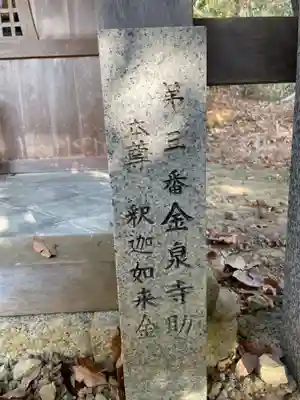 第三番金泉寺助
本尊釈迦如来金